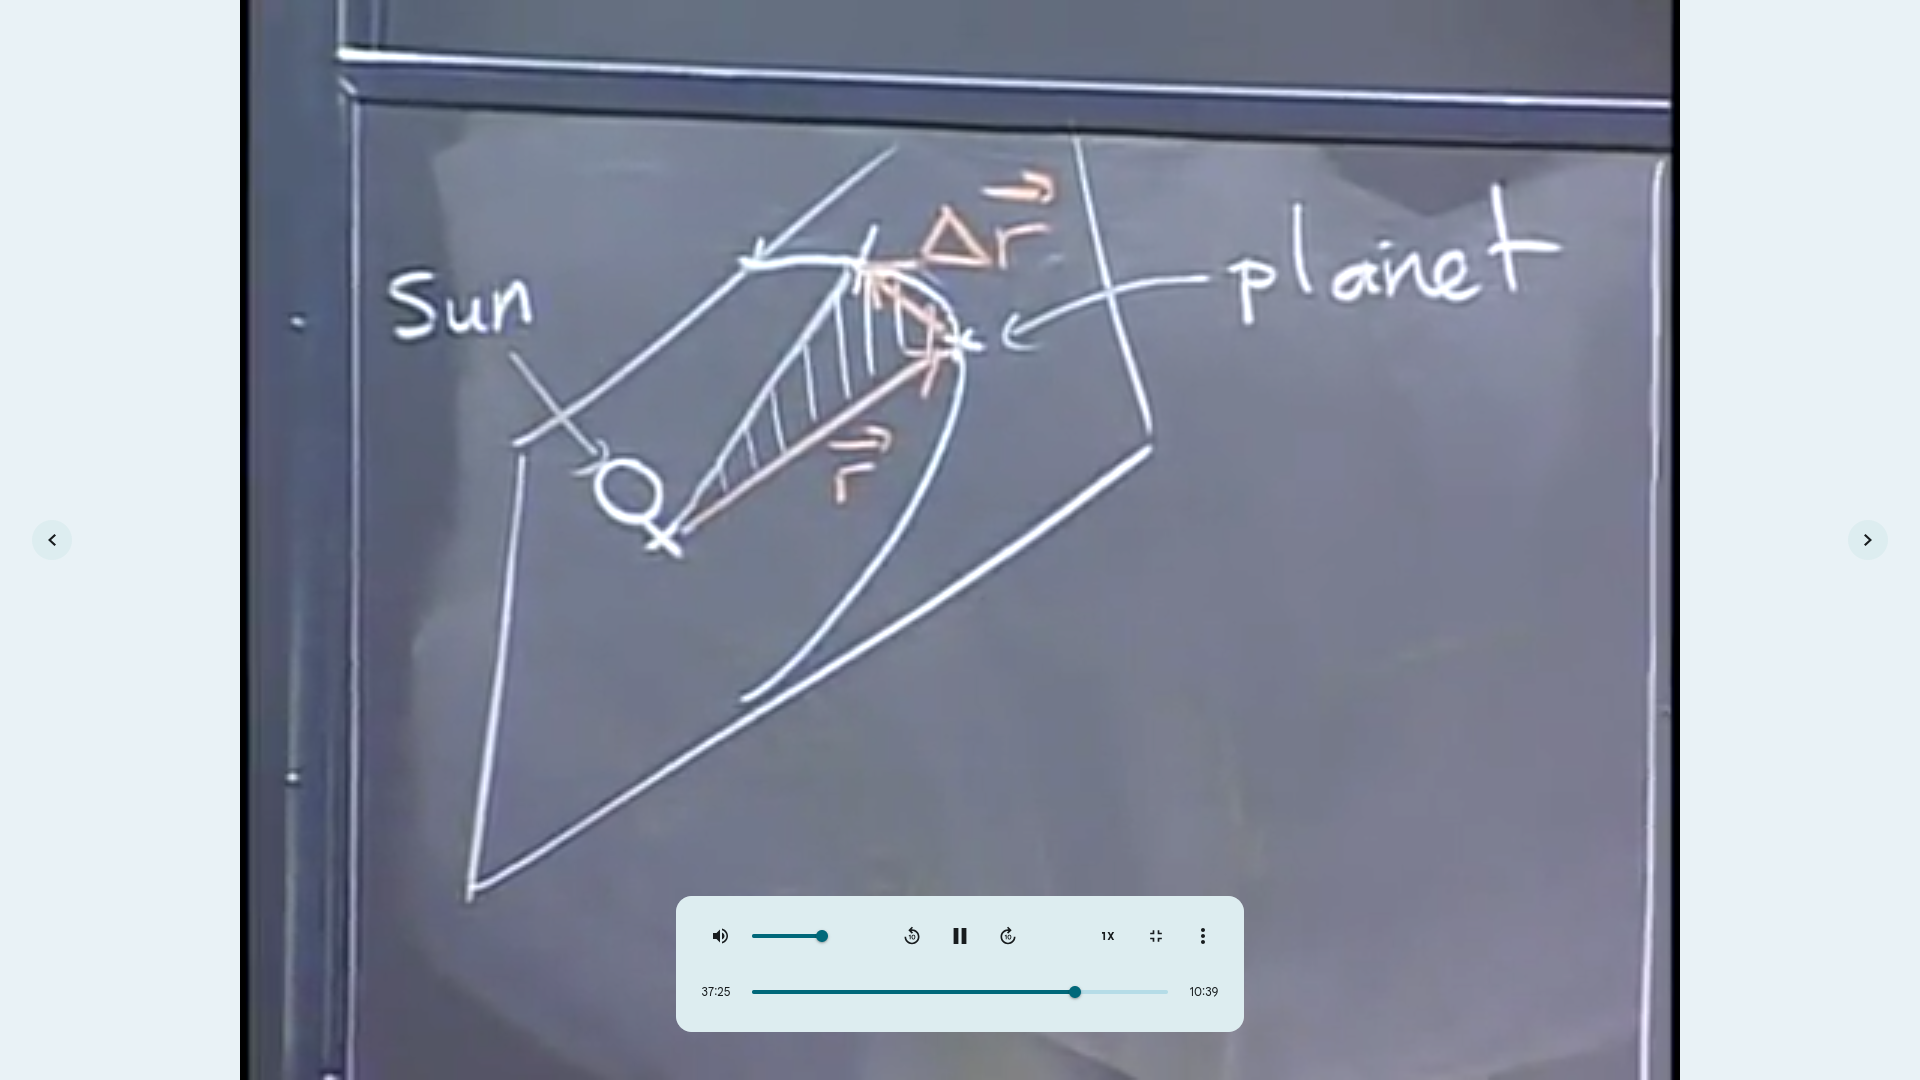 Δr
Sun
planet
r
1X
37:25
10:39